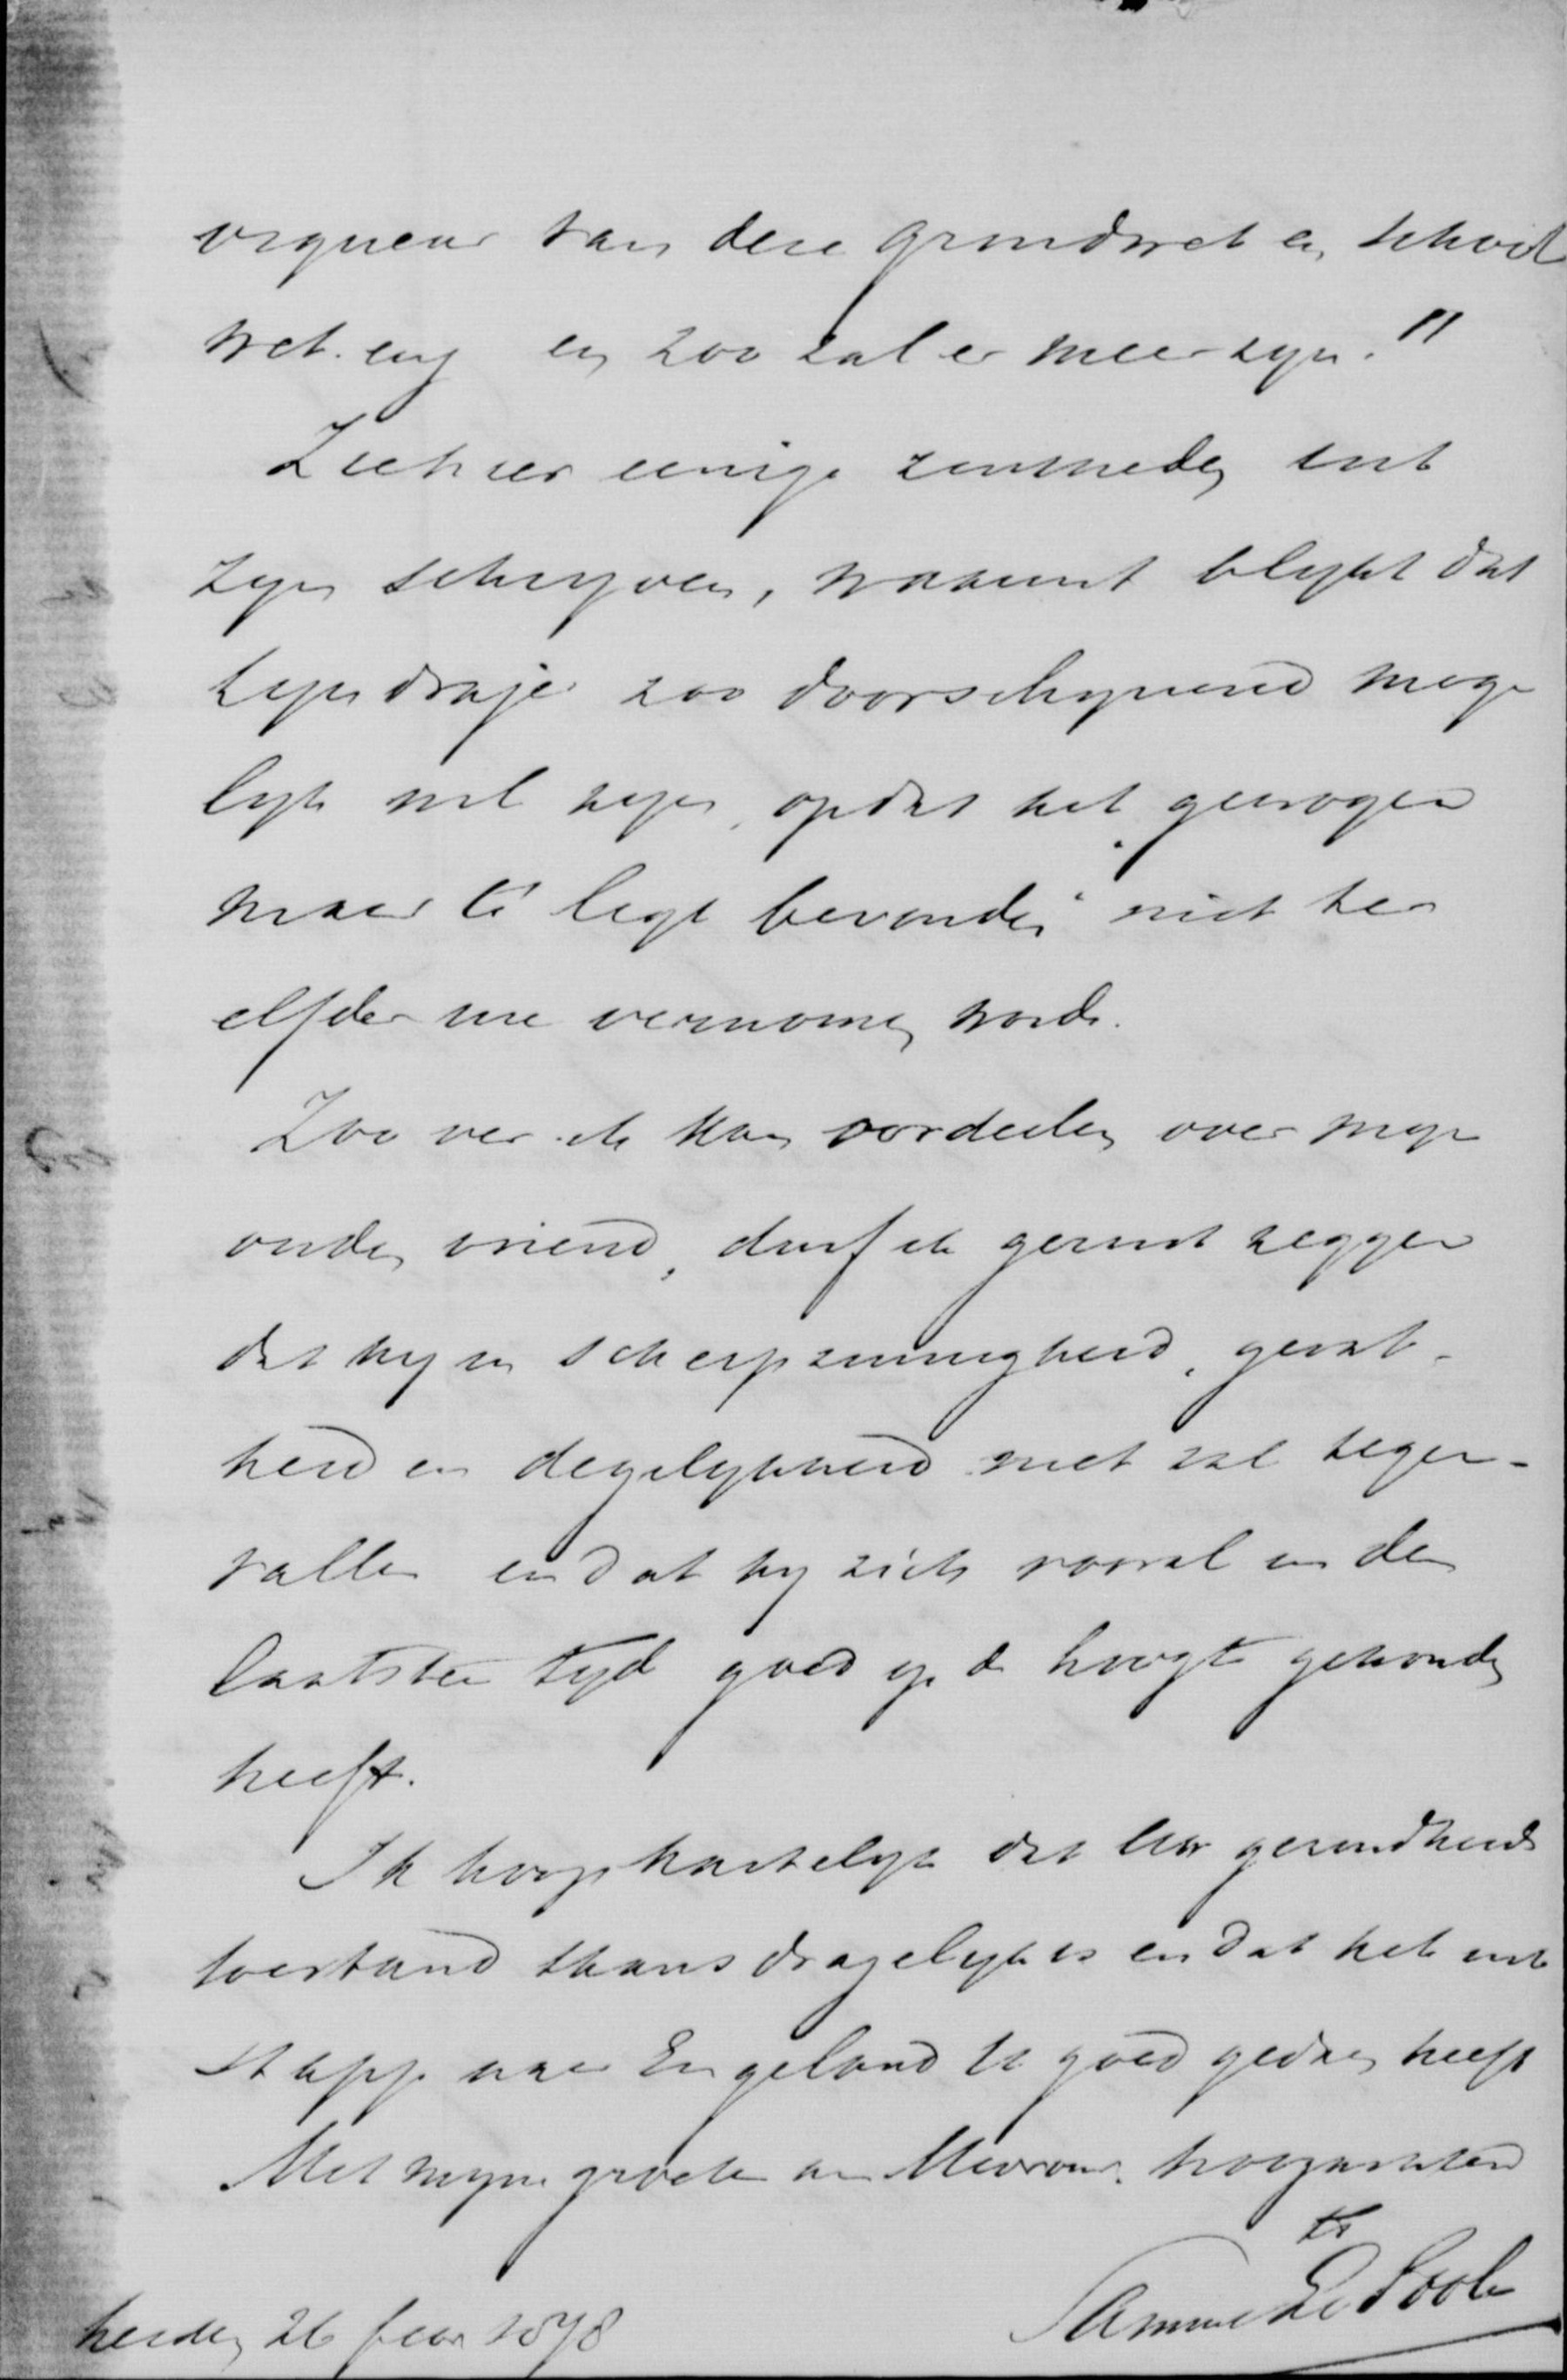 vigueur van deze grondwet en school
wet. enz en zoo zal er meer zyn."
Ziehier eenige zinsneden uit
zyn schryven, waaruit blykt dat
zyn draje zoo doorschynend moge
lyk wil zyn, opdat het "gewogen
maar te ligt bevonden" niet ter
elfder ure vernomen worde.
Zoo ver ik kan oordeelen over myn
ouden vriend, durf ik gerust zeggen
dat hy in scherpzinnigheid, gevat-
heid en degelykheid niet zal tegen-
vallen en dat hy zich vooral in den
laatsten tyd goed op de hoogte gehouden
heeft.
Ik hoop hartelyk dat Uw gezondheids
toestand thans dragelyk is en dat het uit
stapje naar Engeland U goed gedaan heeft
Met myne groete aan Mevrouw, hoogachtend
Samuel Le Poole
Leiden 26 1878